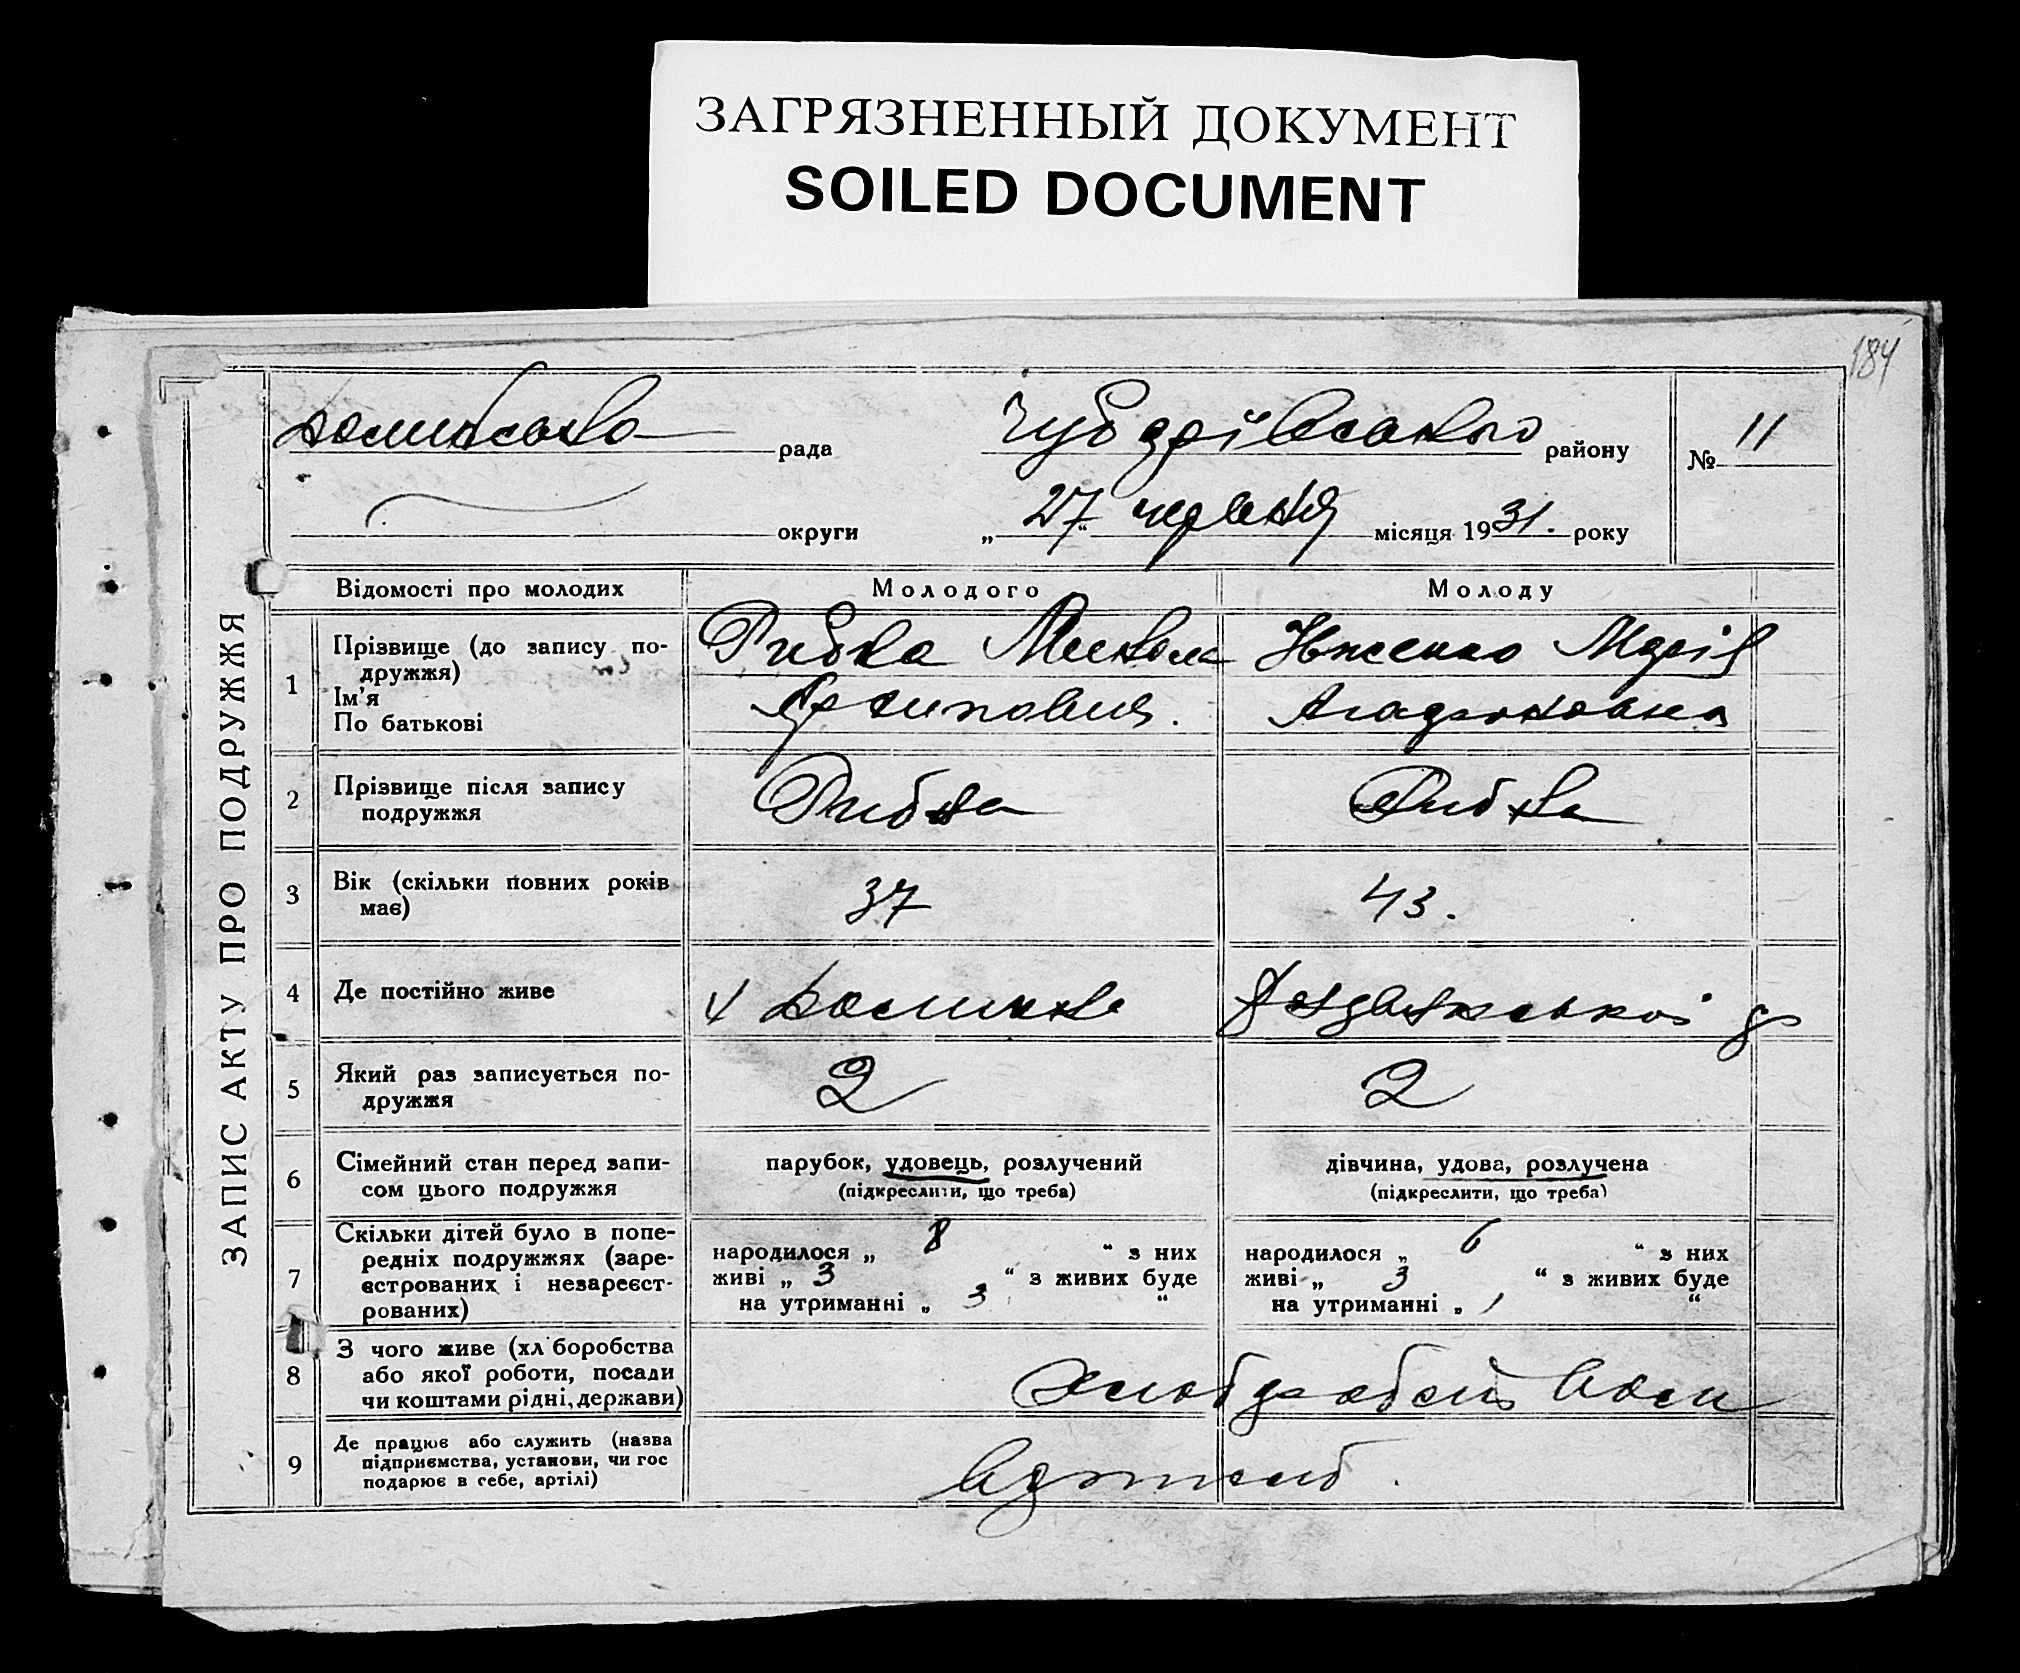 ЗАГРЯЗНЕННЫЙ ДОКУМЕНТ
SOILED DOCUMENT
184
рада
району
№ 11
округи
„ 27 “ червня місяця 1931. року
ЗАПИС АКТУ ПРО ПОДРУЖЖЯ
Відомості про молодих
Молодого
Молоду
1
Прізвище (до запису по-
дружжя)
Ім'я
По батькові
Рибка Микола
Марія
2
Прізвище після запису
подружжя
Рибка
Рибка
3
Вік (скільки повних років
має)
37
43.
4
Де постійно живе
5
Який раз записується по-
дружжя
2
2
6
Сімейний стан перед запи-
сом цього подружжя
парубок, удовець, розлучений
(підкреслити, що треба)
дівчина, удова, розлучена
(підкреслити, що треба)
7
Скільки дітей було в попе-
редніх подружжях (заре-
єстрованих і незареєст-
рованих)
народилося „ 8 “ з них
живі „ 3 “ з живих буде
на утриманні „ 3 “
народилося „ 6 “ з них
живі „ 3 “ з живих буде
на утриманні „ 1 “
8
З чого живе (хл боробства
або якої роботи, посади
чи коштами рідні, держави)
9
Де працює або служить (назва
підприємства, установи, чи гос
подарює в себе, артілі)